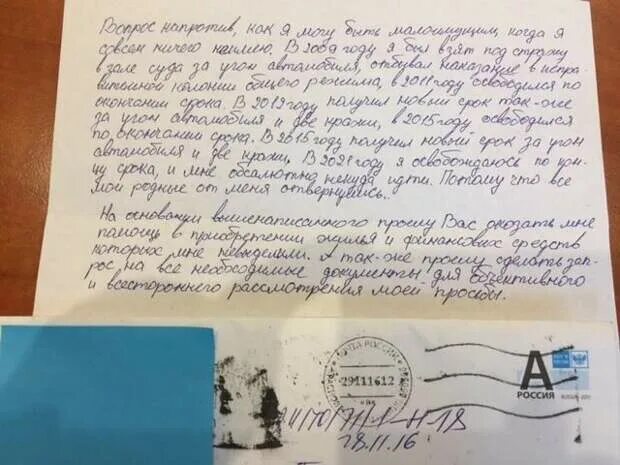 Вопрос напротив, как я могу быть малоимущим, когда я
совсем ничего неимею. В 2009 году я был взят под стражу
в зале суда за угон автомобиля, отбывал наказание в испра-
вительной колонии общего режима, в 2011 году освободился по
окончании срока. В 2012 году получил новый срок так-же
за угон автомобиля и две кражи, в 2015 году освободился
по окончании срока. В 2015 году получил новый срок за угон
автомобиля и две кражи. В 2021 году я освобождаюсь по кон-
цу срока, и мне абсалютно некуда идти. Потому что все
мои родные от меня отвернулись.
На основании вышенаписанного прошу Вас оказать мне
помощь в приобретении жилья и финансовых средств
которых мне невыделяли. А так-же прошу сделать зап-
рос на все необходимые документы для объективного
и всестороннего рассмотрения моей просьбы.
ПОЧТА РОССИИ
291116 12
А
РОССИЯ
28.11.16